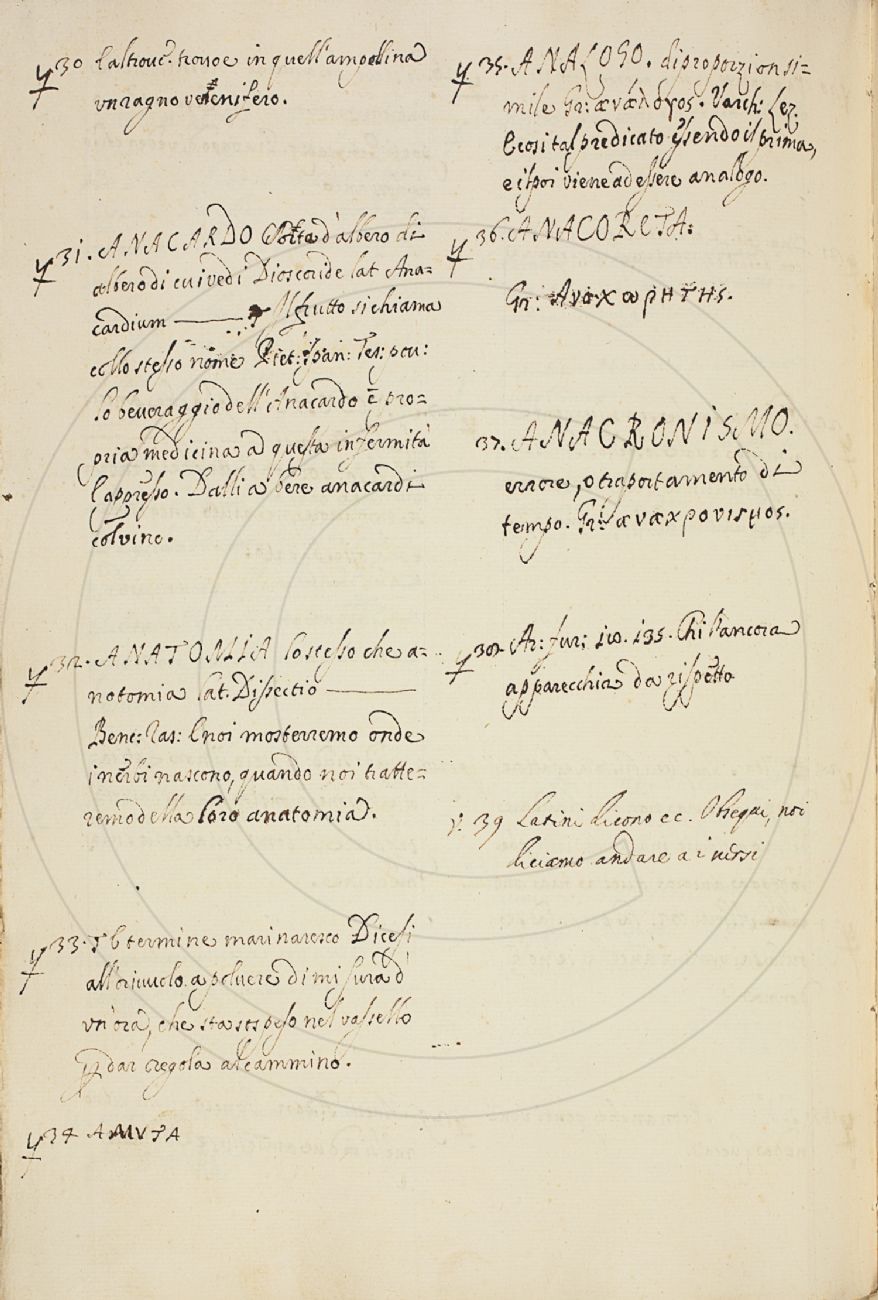 30 E altrove: trovoe in quell'ampollina
un ragno venenifero.
31. ANACARDO Sorta d'albero di
albero di cui vedi Dioscoride lat Ana=
cardium ——— Il frutto si chiama
collo stesso nome Piet: Span: Tes: pou:
lo beveraggio dell'Anacardo è pro=
pria medicina a questa infermità
E appresso. Dalli a bere anacardi
col vino.
32. ANATOMIA lo stesso che a=
notomia lat. Dissectio ———
Benc: Ras: E noi mosterremo onde
i nerbi nascono, quando noi tratte=
remo della loro anatomia.
33. Tb termine marinaresco Dicesi
all'oriuolo a polvere di misura d'
un'ora, che sta sospeso nel vassello
p dar regola al cammino.
34 AMUTA
35. ANALOGO. di proporzion si=
mile Gr: ανάλογος. Varch: Lez.
E così tal predicato essendo il prima,
e il poi viene ad essere analogo.
36. ANACORETA:
Gr: Αναχωρητης.
37. ANACRONISMO.
errore, o traportamento di
tempo. Gr: αναχρονισμος.
38. Ar: fur: 19. 135. Chi l'ancora
apparecchia da rispetto
39 Latini dicono ec. Obsequi, noi
diciamo andare a i versi